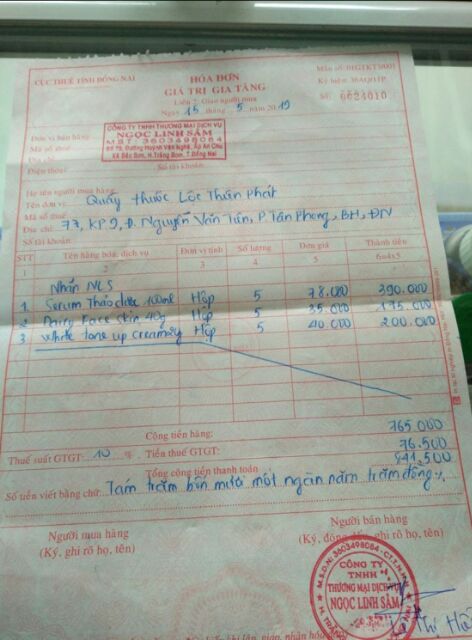 CỤC THUẾ TỈNH ĐỒNG NAI
HÓA ĐƠN
GIÁ TRỊ GIA TĂNG
Liên 2: Giao người mua
Ngày 15 tháng 5 năm 2019
Mẫu số: 01GTKT3/001
Số: 6624010
Đơn vị bán hàng
Mã số thuế
Địa chỉ
Điện thoại
Số tài khoản:
CÔNG TY TNHH THƯƠNG MẠI DỊCH VỤ
NGỌC LINH SÂM
MST: 3603498084
Họ tên người mua hàng
Tên đơn vị: Quầy thuốc Lộc Thiên Phát
Mã số thuế
Địa chỉ: 77, KP 9, Đ. Nguyễn Văn Tiên, P. Tân Phong, BH, ĐN
Số tài khoản:
STT Tên hàng hóa, dịch vụ Đơn vị tính Số lượng Đơn giá Thành tiền
1 2 3 4 5 6=4x5
Nhãn NLS
1 Serum Thảo dược 100ml Hộp 5 78.000 390.000
2 Dairy Face skin 40g Hộp 5 35.000 175.000
3 White Tone up cream Hộp 5 40.000 200.000
Cộng tiền hàng: 765.000
Thuế suất GTGT: 10 % Tiền thuế GTGT: 76.500
Tổng cộng tiền thanh toán 841.500
Số tiền viết bằng chữ: Tám trăm bốn mươi một ngàn năm trăm đồng
Người mua hàng
(Ký, ghi rõ họ, tên)
Người bán hàng
(Ký, đóng dấu, ghi rõ họ, tên)
M.S.D.N: 3603498084
CÔNG TY
TNHH
THƯƠNG MẠI DỊCH VỤ
NGỌC LINH SÂM